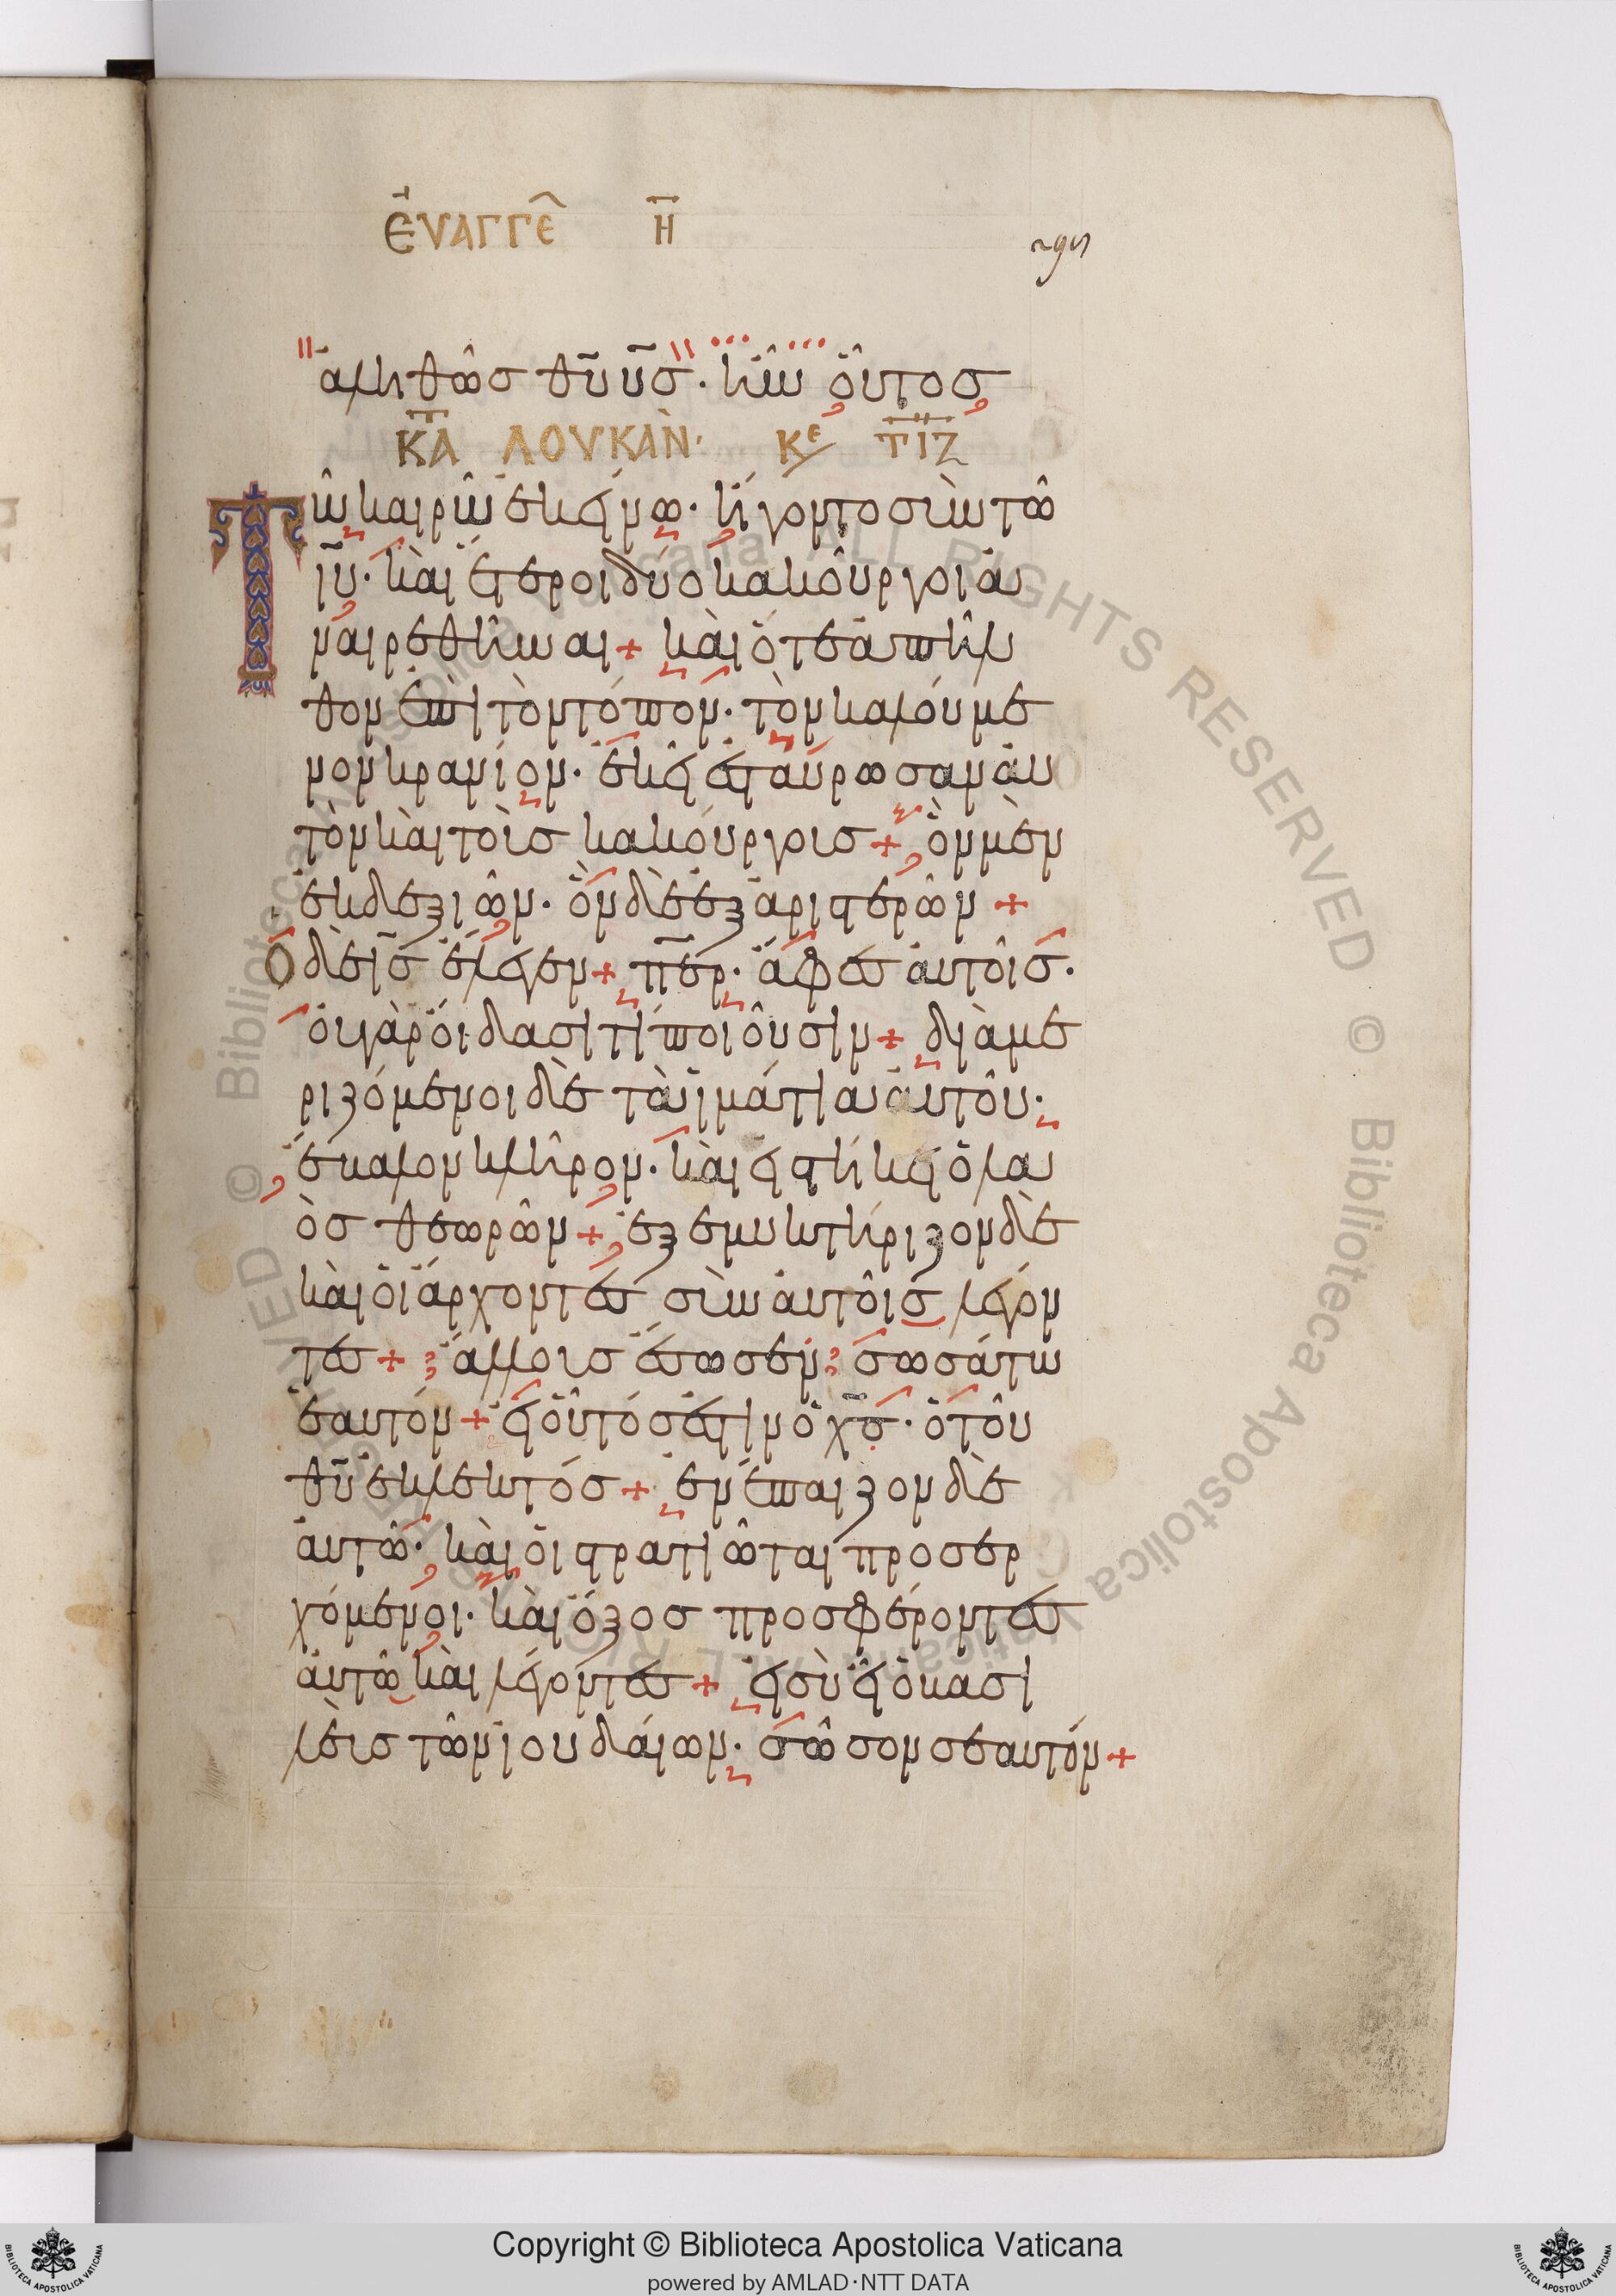 ΕΥΑΓΓΕ Η
ἀληθῶσ θῦ υσ̅. ἦν οὗτοσ
ΚΑ̅ ΛΟΥΚΑΝ. Κε ΤΙΖ
Τῶ καιρῶ ἐκείνω. ἤγοντο σὺν τῶ
ιῦ. καὶ ἕτεροι δύο κακοῦργοι ἀ
ναιρεθῆναι + καὶ ὅτε ἀπῆλ
θον ἐπὶ τὸν τόπον. τὸν καλούμε
νον κρανίον. ἐκεῖ ἐσταύρωσαν ἀυ
τὸν καὶ τοὺσ κακούργουσ + ὃν μὲν
ἐκ δεξιῶν. ὃν δὲ ἐξ ἀριστερῶν +
Ὁ δὲ ισ̅ ἔλεγεν + πε̅ρ. ἄφεσ ἀυτοῖσ.
ὀυ γὰρ ὀίδασι τί ποιοῦσιν + διαμε
ριζόμενοι δὲ τὰ ἱμάτια ἀυτοῦ.
ἔβαλον κλῆρον. καὶ εἱστήκει ὁ λα
ὸσ θεωρῶν + ἐξεμυκτήριζον δὲ
καὶ οἱ ἄρχοντεσ σὺν ἀυτοῖσ λέγον
τεσ + ἄλλουσ ἔσωσεν σωσάτω
ἑαυτόν + εἰ οὗτόσ ἐστιν ὁ χσ̅. ὁ τοῦ
θῦ ἐκλεκτόσ + ἐνέπαιζον δὲ
ἀυτῶ. καὶ οἱ στρατιῶται προσερ
χόμενοι. καὶ ὄξοσ προσφέροντεσ
ἀυτῶ καὶ λέγοντεσ + εἰ σὺ εἶ ὁ βασι
λεὺσ τῶν ἰουδάιων. σῶσον σεαυτόν +
Copyright © Biblioteca Apostolica Vaticana
powered by AMLAD·NTT DATA